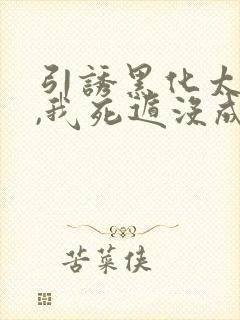 引誘黑化太
,我死遁沒成
苦菜侠